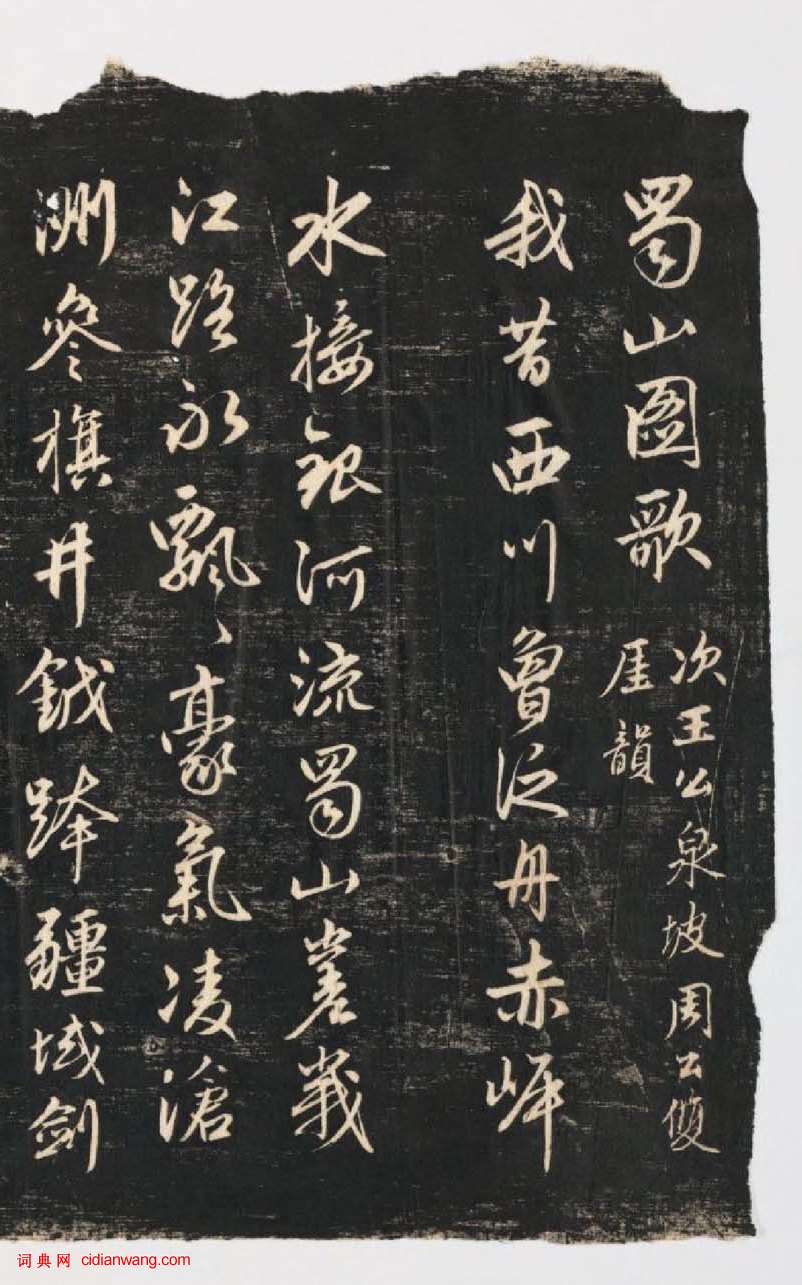 蜀山圖歌
次王公泉坡周公雙
厓韻
我昔西川曾泛舟赤岸
水接銀河流蜀山嵳峩
江路永飄〻豪氣凌滄
洲參旗井鉞跨疆域劍
词典网 cidianwang.com